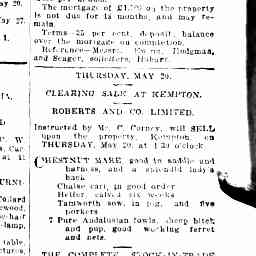 The mortgage of £1,500 on the property
is not due for 18 months, and may re-
main.
Terms—25 per cent. deposit, balance
over the mortgage on completion.
Reference—Messrs. Hodgman,
and Seager, solicitors, Hobart.
THURSDAY, MAY 20.
CLEARING SALE AT KEMPTON.
ROBERTS AND CO. LIMITED.
Instructed by Mr. C. Corney, will SELL
upon the property, Kempton, on
THURSDAY, May 20, at 1.30 o'clock
CHESTNUT MARE, good in saddle and
harness, and a splendid lady's
hack
Chaise cart, in good order
Heifer, calved six weeks
Tamworth sow, in pig, and five
porkers
7 Pure Andalusian fowls, sheep bitch
and pup, good working ferret
and nets.
THE COMPLETE STOCK-IN-TRADE